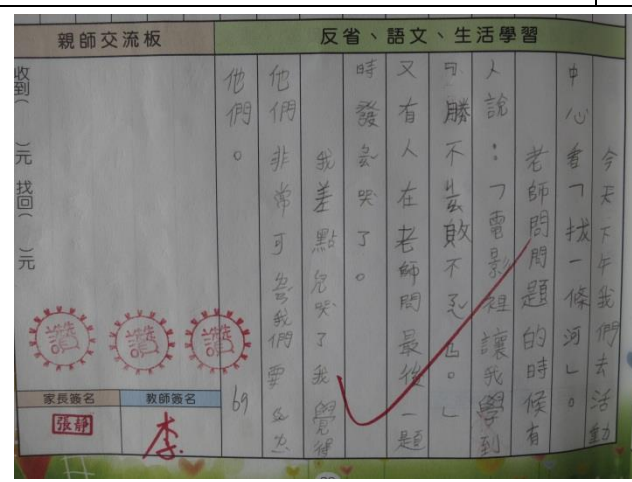 反省、語文、生活學習
今天下午我們去活動
中心看「拔一條河」。
老師問問題的時候有
人說：「電影裡讓我學到
勝不 敗不 。」
又有人在老師問最後一題
時發 哭了。
我差點兒哭了我覺得
他們非常可 我們要
他們。
69
親師交流板
收到（　）元 找回（　）元
讚
讚
讚
教師簽名
李
家長簽名
張靜